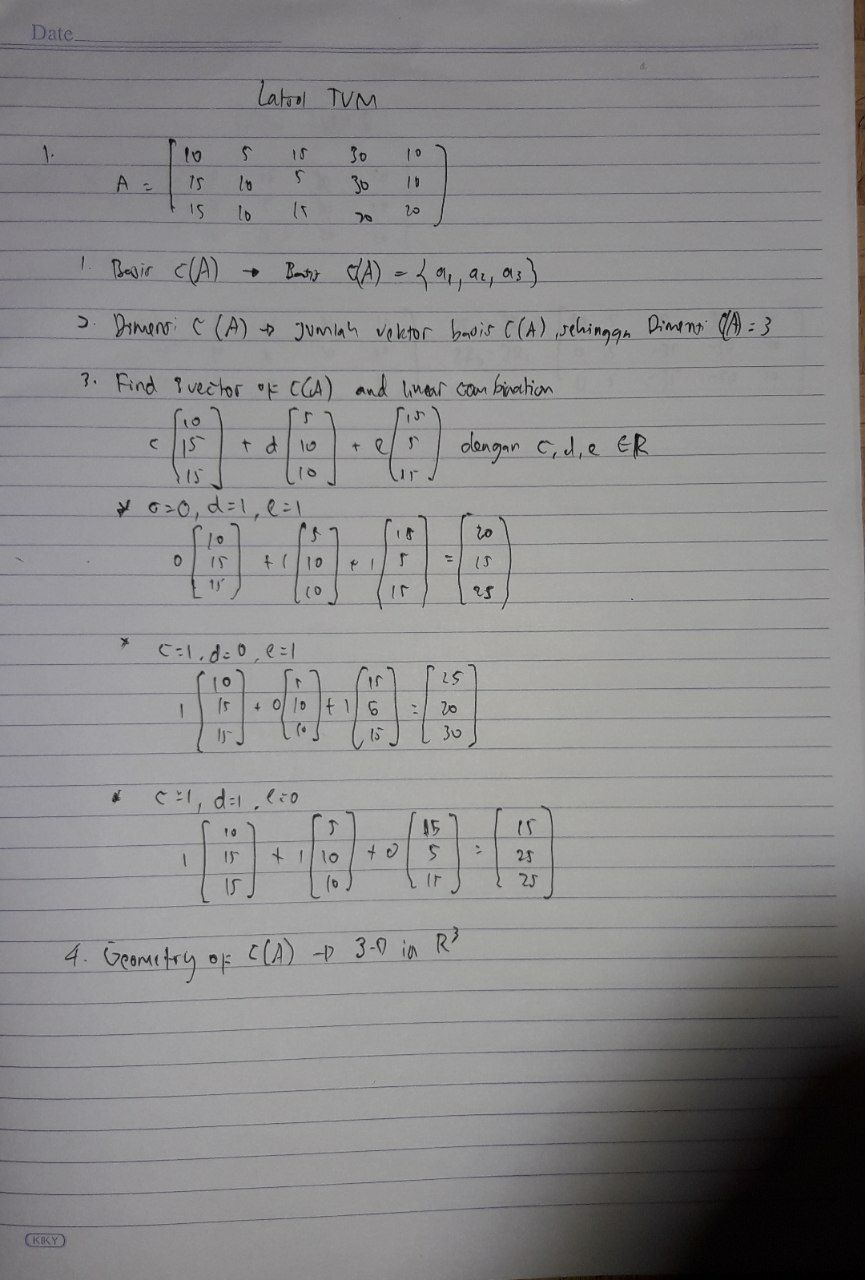 Date
Latsol TVM
1.
10 5 15 30 10
A = 15 10 5 30 10
15 10 15 20 20
1. Basis C(A) → Basis C(A) = { a1, a2, a3 }
2. Dimensi C (A) → Jumlah vektor basis C(A), sehingga Dimensi C(A) = 3
3. Find 3 vector of C(A) and linear combination
c [10 15 15] + d [5 10 10] + e [15 5 15] dengan c, d, e ∈ R
* c=0, d=1, e=1
0 [10 15 15] + 1 [5 10 10] + 1 [15 5 15] = [20 15 25]
* c=1, d=0, e=1
1 [10 15 15] + 0 [5 10 10] + 1 [15 5 15] = [25 20 30]
* c=1, d=1, e=0
1 [10 15 15] + 1 [5 10 10] + 0 [15 5 15] = [15 25 25]
4. Geometry of C(A) → 3-D in R³
KIKY